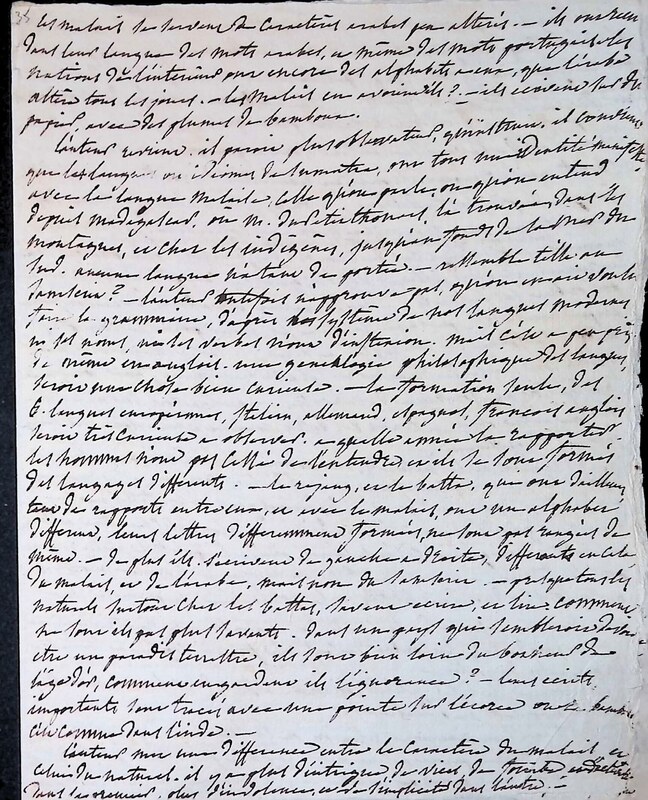 38
les malais se servent de caractères arabes peu altérés. — ils ont reçu
dans leur langue des mots arabes, et même des mots portugais. les
nations de l'intérieur ont encore des alphabets a eux, que l'arabe
altère tous les jours. — les malais en avoient ils ? — ils écrivent sur du
papier avec des plumes de bambou.
l'auteur revient. il paroit plus observateur, qu'instruit. il convient
que les langues ou idiomes de sumatra, ont tous une identité manifeste
avec la langue malaise, celle qu'on parle, ou qu'on entend
depuis madagascar, ou m. du petit thouars, l'a trouvée, dans les
montagnes, et chez les indigènes, jusqu'au fond de la mer du
sud. aucune langue n'a tant de portée. — ressemble t'elle au
samscrit ? — l'auteur n'approuve pas, qu'on en ait voulu
faire la grammaire, d'après les systême de nos langues modernes
ni les noms, ni les verbes n'ont d'inflexion. mais cela a peu près
de même en anglois. une généalogie philosophique des langues,
seroit une chose bien curieuse. — la formation seule, des
6. langues européennes, italien, allemand, espagnol, françois anglois
seroit très curieuse a observer. a quelle année la rapporter.
les hommes n'ont pas cessé de s'entendre, et ils se sont formés
des langages différents. — le rejang, et le batta, qui ont d'ailleurs
tant de rapports entre eux, et avec le malais, ont un alphabet
différent, leurs lettres différemment formées, ne sont pas rangées de
même. — de plus ils s'écrivent de gauche a droite, différents en cela
du malais, et de l'arabe, mais non du samscrit. — presque tous les
naturels surtout chez les battas, savent écrire, et lire. comment
ne sont ils pas plus savants. dans un pays qui sembleroit devoir
être un paradis terrestre, ils sont bien loin du bonheur de
l'âge d'or, comment en gardent ils l'ignorance ? — leurs écrits
importants sont tracés avec une pointe sur l'écorce ou le bambou
c'est comme dans l'inde. —
l'auteur met une différence entre le caractère du malais, et
celui du naturel. il y a plus d'intrigue, de vices, de
dans les premiers, plus d'indolence, et de simplicité dans l'autre. —